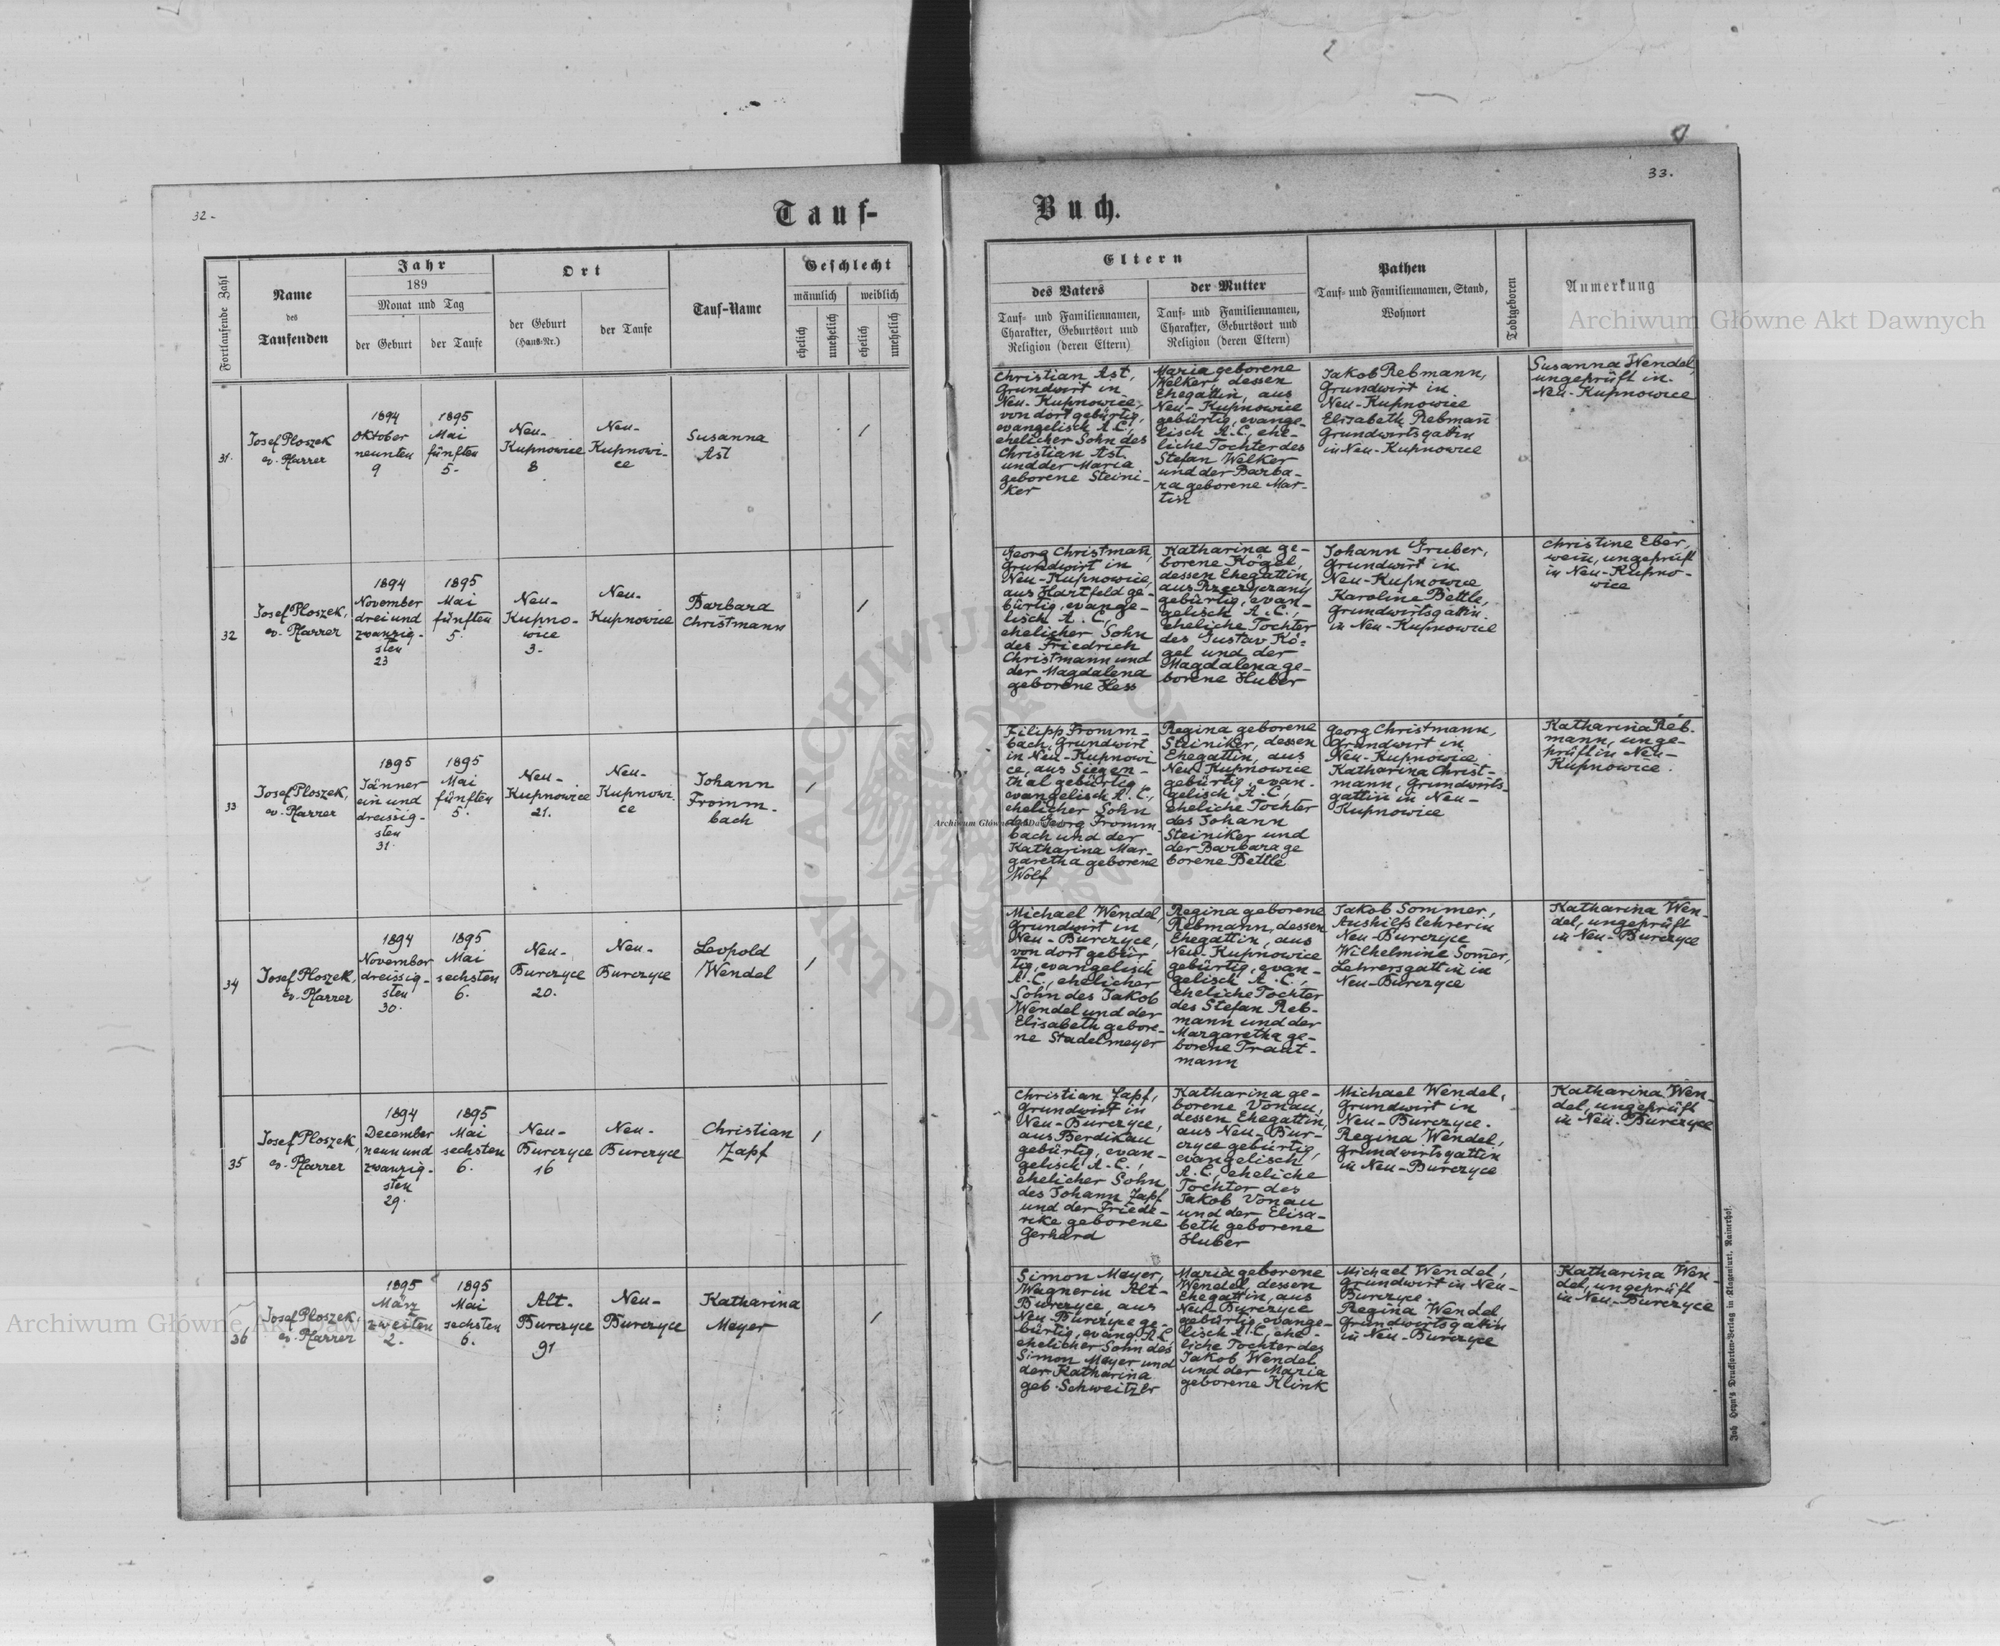 32.
33.
Tauf-
Buch.
Fortlaufende Zahl
Name
des
Taufenden
Jahr
189
Monat und Tag
der Geburt
der Taufe
Ort
der Geburt
(Haus-Nr.)
der Taufe
Tauf-Name
Geschlecht
männlich
weiblich
ehelich
unehelich
ehelich
unehelich
Eltern
des Vaters
Tauf- und Familiennamen,
Charakter, Geburtsort und
Religion (deren Eltern)
der Mutter
Tauf- und Familiennamen,
Charakter, Geburtsort und
Religion (deren Eltern)
Pathen
Tauf- und Familiennamen, Stand,
Wohnort
Todtgeboren
Anmerkung
Archiwum Główne Akt Dawnych
31.
Josef Ploszek
ev. Pfarrer
1894
Oktober
neunten
9
1895
Mai
fünften
5.
Neu-
Kupnowice
8
Neu-
Kupnowi-
ce
Susanna
Ast
/
Christian Ast,
Grundwirt in
Neu-Kupnowice,
von dort gebürtig,
evangelisch A.C.,
ehelicher Sohn des
Christian Ast
und der Maria
geborene Steini-
ker
Maria geborene
Welker, dessen
Ehegattin, aus
Neu-Kupnowice
gebürtig, evange-
lisch A.C., ehe-
liche Tochter des
Stefan Welker
und der Barba-
ra geborene Mar-
tin
Jakob Rebmann,
Grundwirt in
Neu-Kupnowice
Elisabeth Rebmañ
Grundwirtsgattin
in Neu-Kupnowice
Susanna Wendel,
ungeprüft in
Neu-Kupnowice
32
Josef Ploszek,
ev. Pfarrer
1894
November
drei und
zwanzig-
sten
23
1895
Mai
fünften
5.
Neu-
Kupno-
wice
3.
Neu-
Kupnowice
Barbara
Christmann
/
Georg Christmañ,
Grundwirt in
Neu-Kupnowice,
aus Hartfeld ge-
bürtig, evange-
lisch A.C.,
ehelicher Sohn
des Friedrich
Christmann und
der Magdalena
geborene Hess
Katharina ge-
borene Kögel,
dessen Ehegattin,
gebürtig, evan-
gelisch A.C.,
eheliche Tochter
des Gustav Kö-
gel und der
Magdalena ge-
borene Huber
Johann Gruber,
Grundwirt in
Neu-Kupnowice
Karoline Bettle,
Grundwirtsgattin
in Neu-Kupnowice
Christine Eber,
wein, ungeprüft
in Neu-Kupno-
wice
33
Josef Ploszek,
ev. Pfarrer
1895
Jänner
ein und
dreissig-
sten
31.
1895
Mai
fünften
5.
Neu-
Kupnowice
21.
Neu-
Kupnowi-
ce
Johann
Fromm-
bach
/
Filipp Fromm-
bach, Grundwirt
in Neu-Kupnowi
ce, aus Siegen-
thal gebürtig,
evangelisch A.C.,
ehelicher Sohn
des Georg Fromm-
bach und der
Katharina Mar-
garetha geborene
Wolf
Regina geborene
Steiniker, dessen
Ehegattin, aus
Neu-Kupnowice
gebürtig, evan-
gelisch A.C.,
eheliche Tochter
des Johann
Steiniker und
der Barbara ge
borene Bettle
Georg Christmann,
Grundwirt in
Neu-Kupnowice
Katharina Christ-
mann, Grundwirts-
gattin in Neu-
Kupnowice
Katharina Reb-
mann, unge-
prüft in Neu-
Kupnowice.
34
Josef Ploszek,
ev. Pfarrer
1894
November
dreissig-
sten
30.
1895
Mai
sechsten
6.
Neu-
Burczyce
20.
Neu-
Burczyce
Leopold
Wendel
/
Michael Wendel,
Grundwirt in
Neu-Burczyce,
von dort gebür-
tig, evangelisch
A.C., ehelicher
Sohn des Jakob
Wendel und der
Elisabeth gebore-
ne Stadelmeyer
Regina geborene
Rebmann, dessen
Ehegattin, aus
Neu-Kupnowice
gebürtig, evan-
gelisch A.C.,
eheliche Tochter
des Stefan Reb-
mann und der
Margaretha ge-
borene Traut-
mann
Jakob Sommer,
Aushilfslehrer in
Neu-Burczyce
Wilhelmine Som̄er,
Lehrersgattin in
Neu-Burczyce
Katharina Wen-
del, ungeprüft
in Neu-Burczyce
35
Josef Ploszek,
ev. Pfarrer
1894
December
neun und
zwanzig-
sten
29.
1895
Mai
sechsten
6.
Neu-
Burczyce
16
Neu-
Burczyce
Christian
Zapf
/
Christian Zapf,
Grundwirt in
Neu-Burczyce,
aus Berdikau
gebürtig, evan-
gelisch A.C.,
ehelicher Sohn
des Johann Zapf
und der Friede-
rike geborene
Gerhard
Katharina ge-
borene Vonau,
dessen Ehegattin,
aus Neu-Bur-
czyce gebürtig,
evangelisch
A.C., eheliche
Tochter des
Jakob Vonau
und der Elisa-
beth geborene
Huber
Michael Wendel,
Grundwirt in
Neu-Burczyce.
Regina Wendel,
Grundwirtsgattin
in Neu-Burczyce
Katharina Wen-
del, ungeprüft
in Neu-Burczyce
36
Josef Ploszek,
ev. Pfarrer
1895
März
zweiten
2.
1895
Mai
sechsten
6.
Alt-
Burczyce
91
Neu-
Burczyce
Katharina
Meyer
/
Simon Meyer,
Wagner in Alt-
Burczyce, aus
Neu-Burczyce ge-
bürtig, evang. A.C.
ehelicher Sohn des
Simon Meyer und
der Katharina
geb. Schweitzer
Maria geborene
Wendel, dessen
Ehegattin, aus
Neu-Burczyce
gebürtig, evange-
lisch A.C., ehe-
liche Tochter des
Jakob Wendel
und der Maria
geborene Klink
Michael Wendel,
Grundwirt in Neu-
Burczyce.
Regina Wendel,
Grundwirtsgattin
in Neu-Burczyce
Katharina Wen-
del, ungeprüft
in Neu-Burczyce
Joh. Heyn's Drucksorten-Verlag in Klagenfurt, Rainerhof.
Archiwum Główne Akt Dawnych
Archiwum Główne Akt Dawnych
ARCHIWUM
AKT DAWNYCH